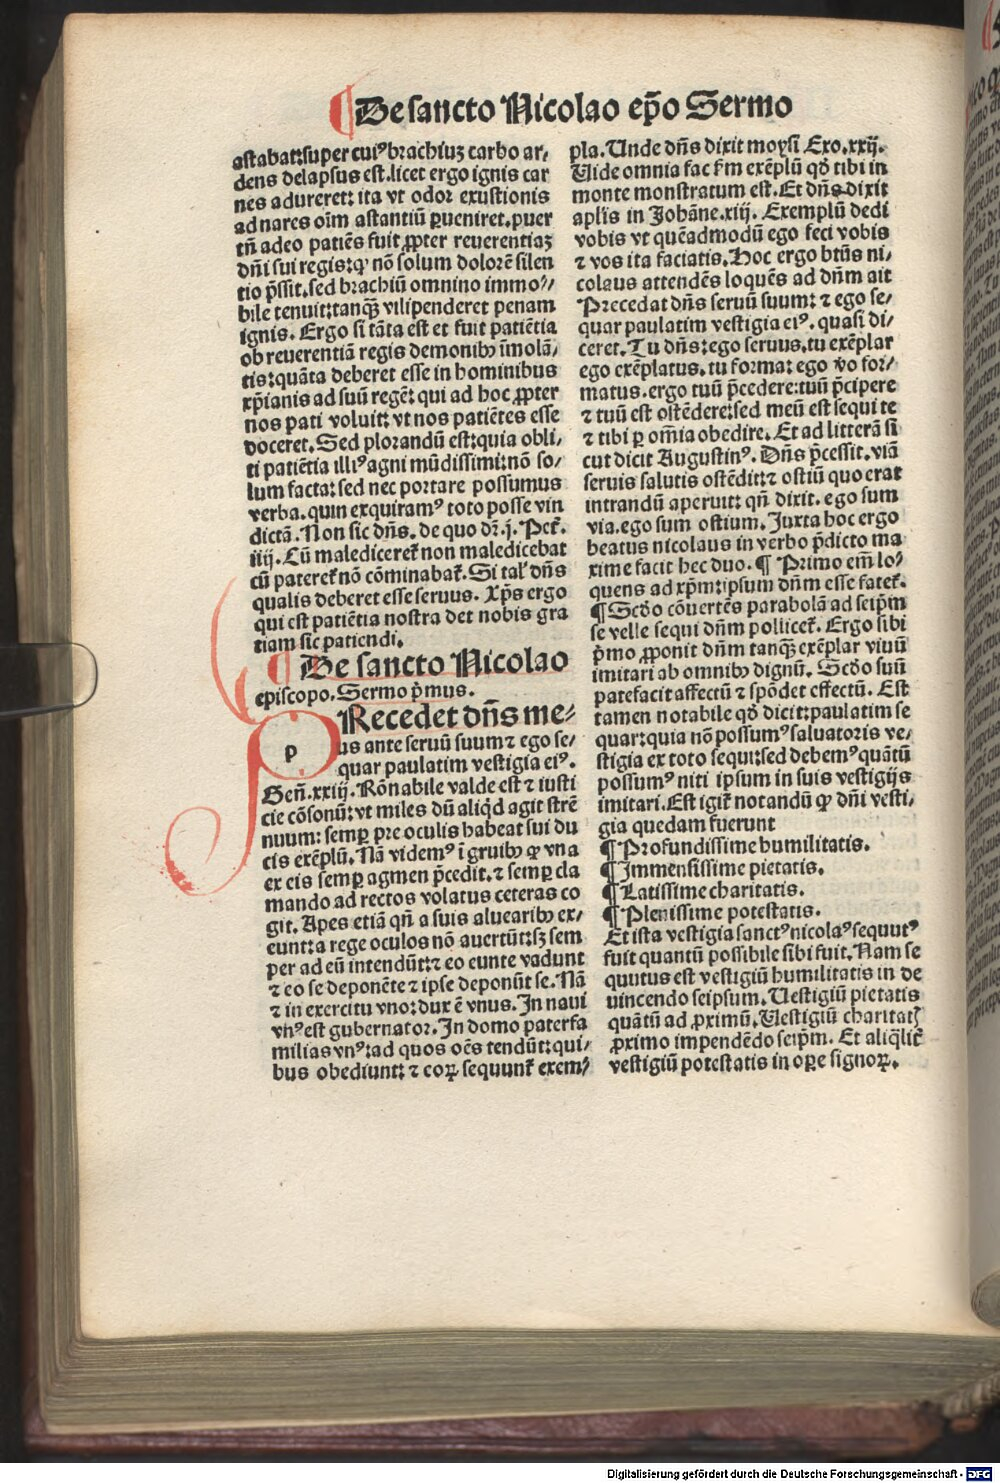 ¶De sancto Nicolao ep̄o Sermo
astabat:super cuiꝰ brachiuz carbo ar⸗
dens delapsus est.licet ergo ignis car
nes adureret: ita vt odor exustionis
ad nares oīm astantiū ꝑueniret.puer
tñ adeo patiēs fuit ꝓpter reuerentiaz
dñi sui regis:ꝙ nō solum dolorē silen
tio p̄ssit.sed brachiū omnino immo⸗
bile tenuit:tanqꝫ vilipenderet penam
ignis. Ergo si tāta est et fuit patiētia
ob reuerentiā regis demonibꝰ īmolā⸗
tis:quāta deberet esse in hominibus
xp̄ianis ad suū regē: qui ad hoc ꝓpter
nos pati voluit: vt nos patiētes esse
doceret. Sed plorandū est:quia obli⸗
ti patiētia illiꝰ agni mūdissimi:nō so⸗
lum facta: sed nec portare possumus
verba. quin exquiramꝰ toto posse vin
dictā. Non sic dñs. de quo dr̄.j. Pet̄.
iij. Cū malediceret̄ non maledicebat
cū pateret̄ nō cōminabat̄. Si tal' dñs
qualis deberet esse seruus. Xp̄s ergo
qui est patiētia nostra det nobis gra
tiam sic patiendi.
¶ De sancto Nicolao
episcopo. Sermo p̄mus.
p
PRecedet dñs me⸗
us ante seruū suum ⁊ ego se⸗
quar paulatim vestigia eiꝰ.
Geñ.xxiij. Rōnabile valde est ⁊ iusti
cie cōsonū: vt miles dū aliqd agit strē
nuum: semꝑ pre oculis habeat sui du
cis exēplū. Nā videmꝰ ī gruibꝰ ꝙ vna
ex eis semꝑ agmen p̄cedit. ⁊ semꝑ cla
mando ad rectos volatus ceteras co
git. Apes etiā qñ a suis aluearibꝰ ex⸗
eunt: a rege oculos nō auertūt:sꝫ sem
per ad eū intendūt:⁊ eo eunte vadunt
⁊ eo se deponēte ⁊ ipse deponūt se. Nā
⁊ in exercitu vno: dux ē vnus. In naui
vnꝰ est gubernator. In domo paterfa
milias vnꝰ: ad quos oēs tendūt: qui⸗
bus obediunt: ⁊ coꝝ sequunt̄ exem⸗
pla. Unde dñs dixit moysi Exo.xxij.
Uide omnia fac ẜm exēplū qd tibi in
monte monstratum est. Et dñs dixit
apl̄is in Johāne.xiij. Exemplū dedi
vobis vt quēadmodū ego feci vobis
⁊ vos ita faciatis. Hoc ergo btūs ni⸗
colaus attendēs loquēs ad dñm ait
Precedat dñs seruū suum: ⁊ ego se⸗
quar paulatim vestigia eiꝰ. quasi di⸗
ceret. Tu dñs: ego seruus.tu exēplar
ego exēplatus. tu forma: ego v̄o for⸗
matus. ergo tuū p̄cedere: tuū p̄cipere
⁊ tuū est ostēdere:sed meū est sequi te
⁊ tibi ꝑ om̄ia obedire. Et ad litterā si
cut dicit Augustinꝰ. Dñs p̄cessit. viā
seruis salutis ostēdit: ⁊ ostiū quo erat
intrandū aperuit: qñ dixit. ego sum
via.ego sum ostium. Juxta hoc ergo
beatus nicolaus in verbo p̄dicto ma
xime facit hec duo. ¶ Primo em̄ lo⸗
quens ad xp̄m: ipsum dñm esse fatet̄.
¶ Scdo cōuertēs parabolā ad seip̄m
se velle sequi dñm pollicet̄. Ergo sibi
p̄mo ꝓponit dñm tanqꝫ exēplar viuū
imitari ab omnibꝰ dignū. Scdo suū
patefacit affectū ⁊ spōdet effectū. Est
tamen notabile qd dicit: paulatim se
quar: quia nō possumꝰ saluatoris ve⸗
stigia ex toto sequi:sed debemꝰ quātū
possumꝰ niti ipsum in suis vestigijs
imitari. Est igit̄ notandū ꝙ dñi vesti⸗
gia quedam fuerunt
¶ Profundissime humilitatis.
¶ Immensissime pietatis.
¶ Latissime charitatis.
¶ Plenissime potestatis.
Et ista vestigia sanctꝰ nicolaꝰ sequutꝰ
fuit quantū possibile sibi fuit. Nam se
quutus est vestigiū humilitatis in de
uincendo seipsum. Uestigiū pietatis
quātū ad ꝓximū. Uestigiū charitatꝭ
ꝓximo impendēdo seip̄m. Et aliql̄it̄
vestigiū potestatis in oꝑe signoꝝ.
Digitalisierung gefördert durch die Deutsche Forschungsgemeinschaft - DFG